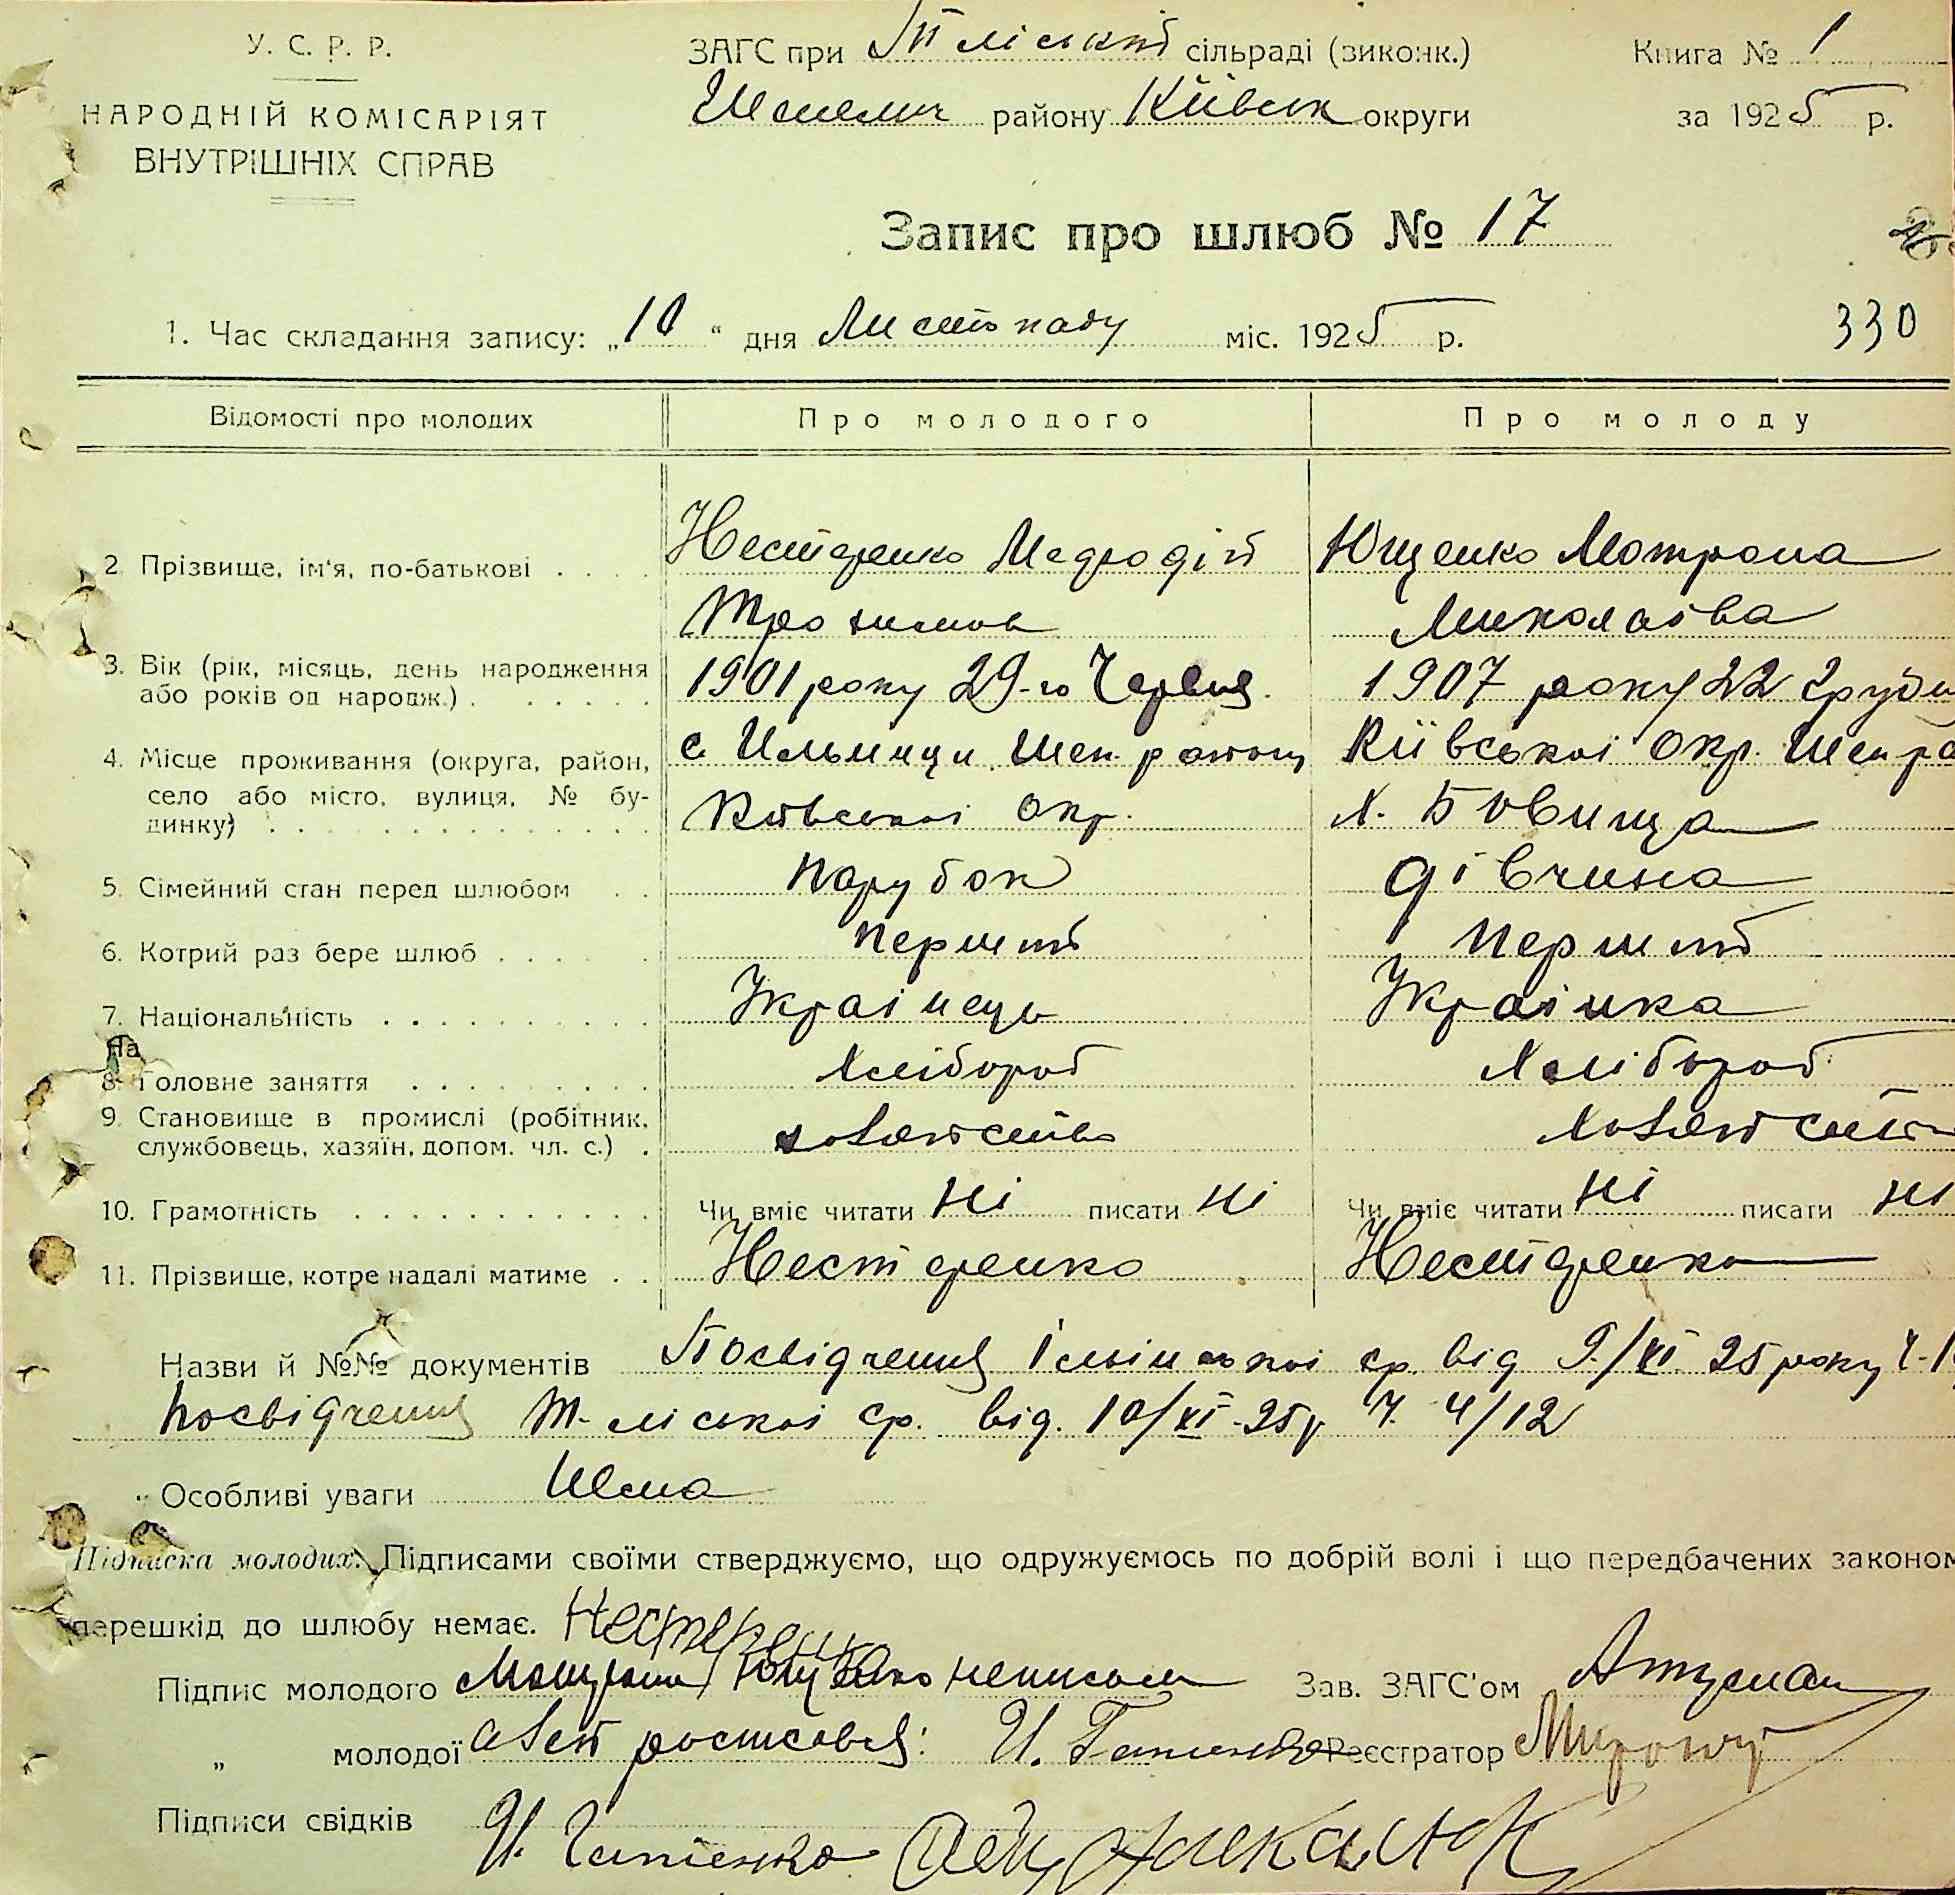 У. С. Р. Р.
НАРОДНІЙ КОМІСАРІЯТ
ВНУТРІШНІХ СПРАВ
ЗАГС при Т. ліський сільраді (виконк.)
Шепелич району Київськ округи
Книга № 1
за 1925 р.
Запис про шлюб № 17
1. Час складання запису: „10“ дня Листопаду міс. 1925 р.
330
Відомості про молодих
Про молодого
Про молоду
2. Прізвище, ім'я, по-батькові
Нестеренко Мефодій
Трохимов
Ющенко Мотрона
Миколаєва
3. Вік (рік, місяць, день народження
або років од народж.)
1901 року 29-го Червня
1907 року 22 Грудн
4. Місце проживання (округа, район,
село або місто, вулиця, № бу-
динку)
с. Ильинци Шеп. району
Київської Окр.
Київської Окр. Шеп ра
х. Бовища
5. Сімейний стан перед шлюбом
Парубок
дівчина
6. Котрий раз бере шлюб
Перший
Перший
7. Національність
Українець
Українка
На
8. Головне заняття
Хлібороб
Хлібороб
9. Становище в промислі (робітник,
службовець, хазяїн, допом. чл. с.)
10. Грамотність
Чи вміє читати Ні писати Ні
Чи вміє читати Ні писати Ні
11. Прізвище, котре надалі матиме
Нестеренко
Нестеренко
Назви й №№ документів Посвідчення Ільінської ср. від 9/XI 25 року Ч.
Посвідчення Т-ліської ср. від. 10/XI-25р Ч. 4/12
Особливі уваги Нема
Підписка молодих: Підписами своїми стверджуємо, що одружуємось по добрій волі і що передбачених законом
перешкід до шлюбу немає. Нестеренко
Підпис молодого Мотрона Ющенко неписьм
Зав. ЗАГС'ом
„ молодої
Реєстратор
Підписи свідків